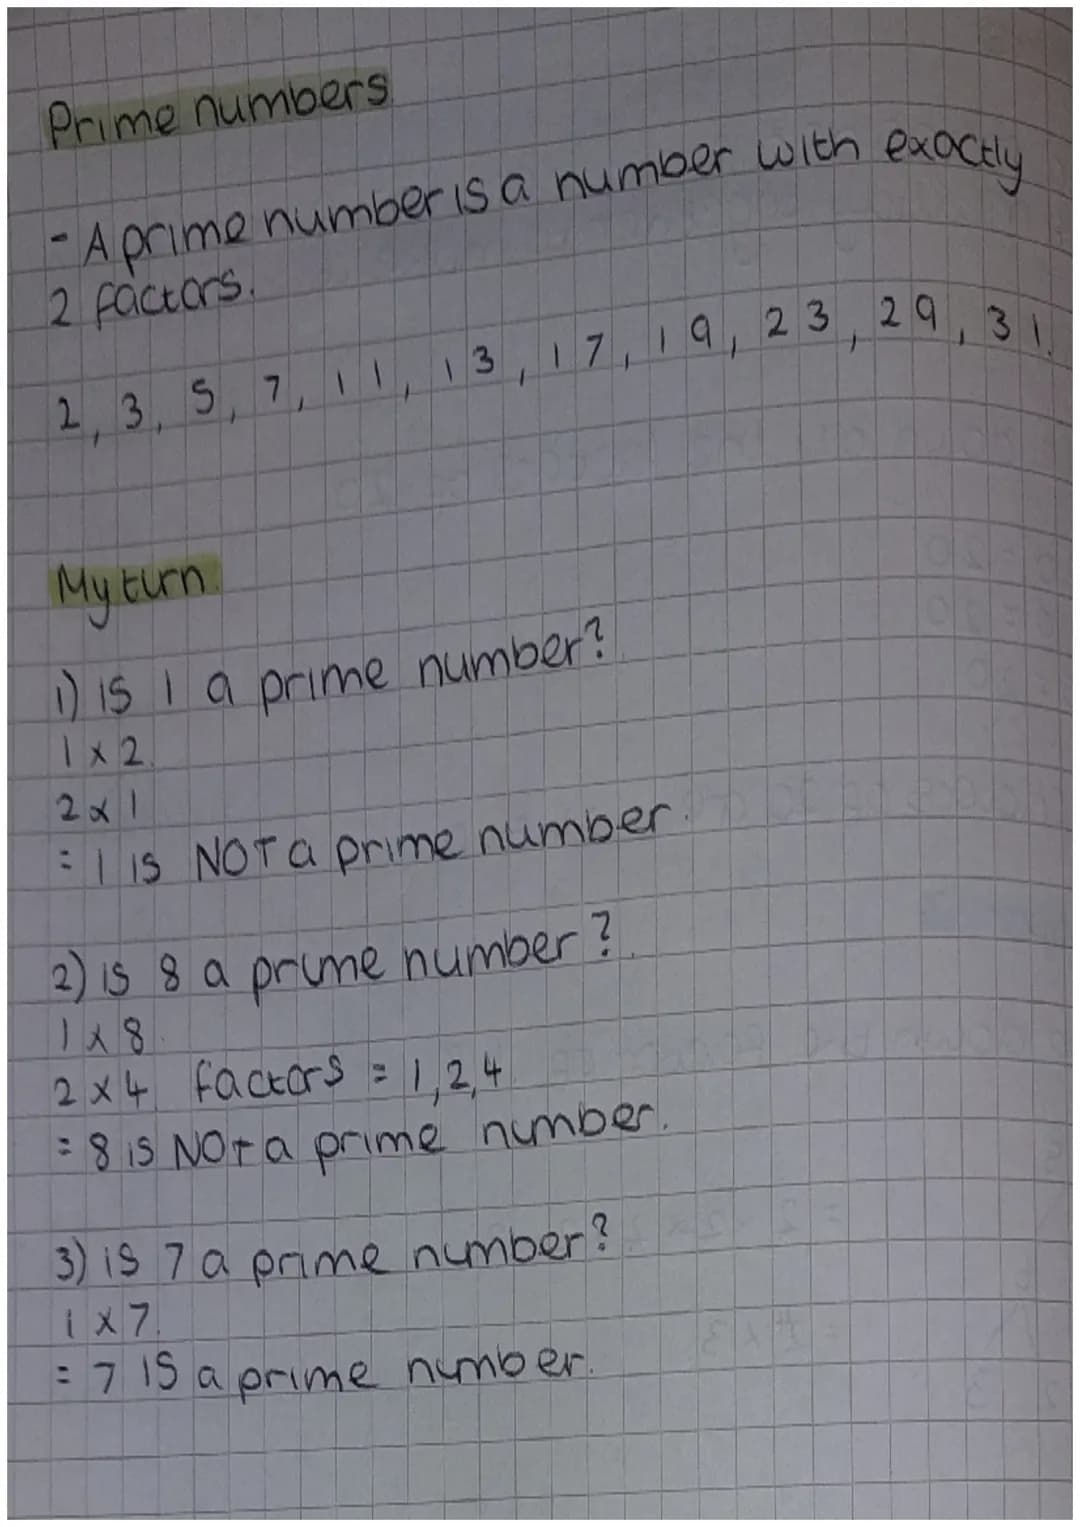 Prime numbers
- A prime number is a number with exactly
2 factors.
2, 3, 5, 7, 11, 13, 17, 19, 23, 29, 31.
My turn.
1) is 1 a prime number?
1 x 2.
2 x 1
= 1 is NOT a prime number.
2) is 8 a prime number?
1 x 8.
2 x 4 factors = 1, 2, 4
= 8 is NOT a prime number.
3) is 7 a prime number?
1 x 7.
= 7 IS a prime number.